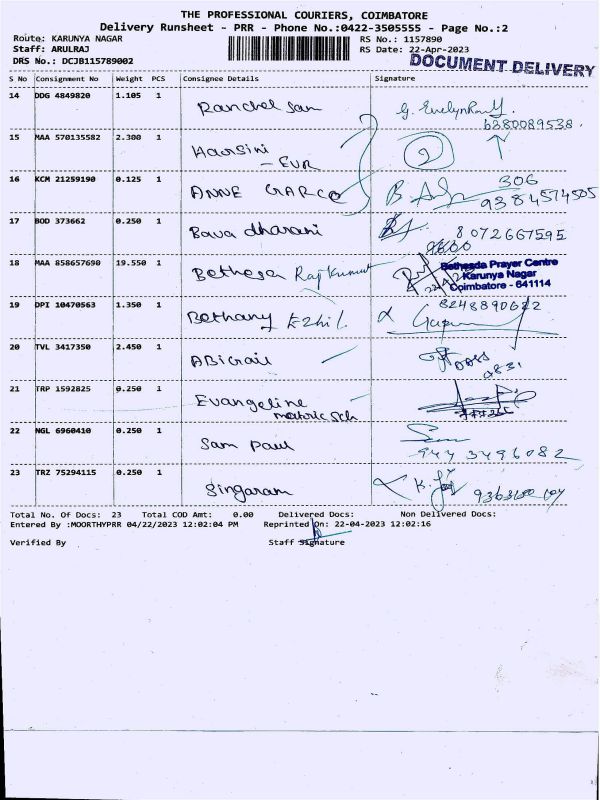 THE PROFESSIONAL COURIERS, COIMBATORE
Delivery Runsheet - PRR - Phone No.:0422-3505555 - Page No.:2
Route: KARUNYA NAGAR RS No.: 1157890
Staff: ARULRAJ RS Date: 22-Apr-2023
DRS No.: DCJB115789002 DOCUMENT DELIVERY
S No Consignment No Weight PCS Consignee Details Signature
14 DDG 4849820 1.105 1 Ranchel San
6380089538.
15 MAA 570135582 2.300 1 Harsini
- EVR 2
16 KCM 21259190 0.125 1 ANNE GARCE 306
9384574505
17 BOD 373662 0.250 1 Bava dharani 8072667595
18 MAA 858657690 19.550 1 Bethesda Rajkumar
Bethesda Prayer Centre
Karunya Nagar
Coimbatore - 641114
19 DPI 10470563 1.350 1 Bethany Ezhil 8248890622
20 TVL 3417350 2.450 1 ABIGAIL
21 TRP 1592825 0.250 1 Evangeline
matric sch
22 NGL 6960410 0.250 1 Sam Paul Sam
9443496082
23 TRZ 75294115 0.250 1 Singaram
Total No. Of Docs: 23 Total COD Amt: 0.00 Delivered Docs: Non Delivered Docs:
Entered By :MOORTHYPRR 04/22/2023 12:02:04 PM Reprinted On: 22-04-2023 12:02:16
Verified By Staff Signature